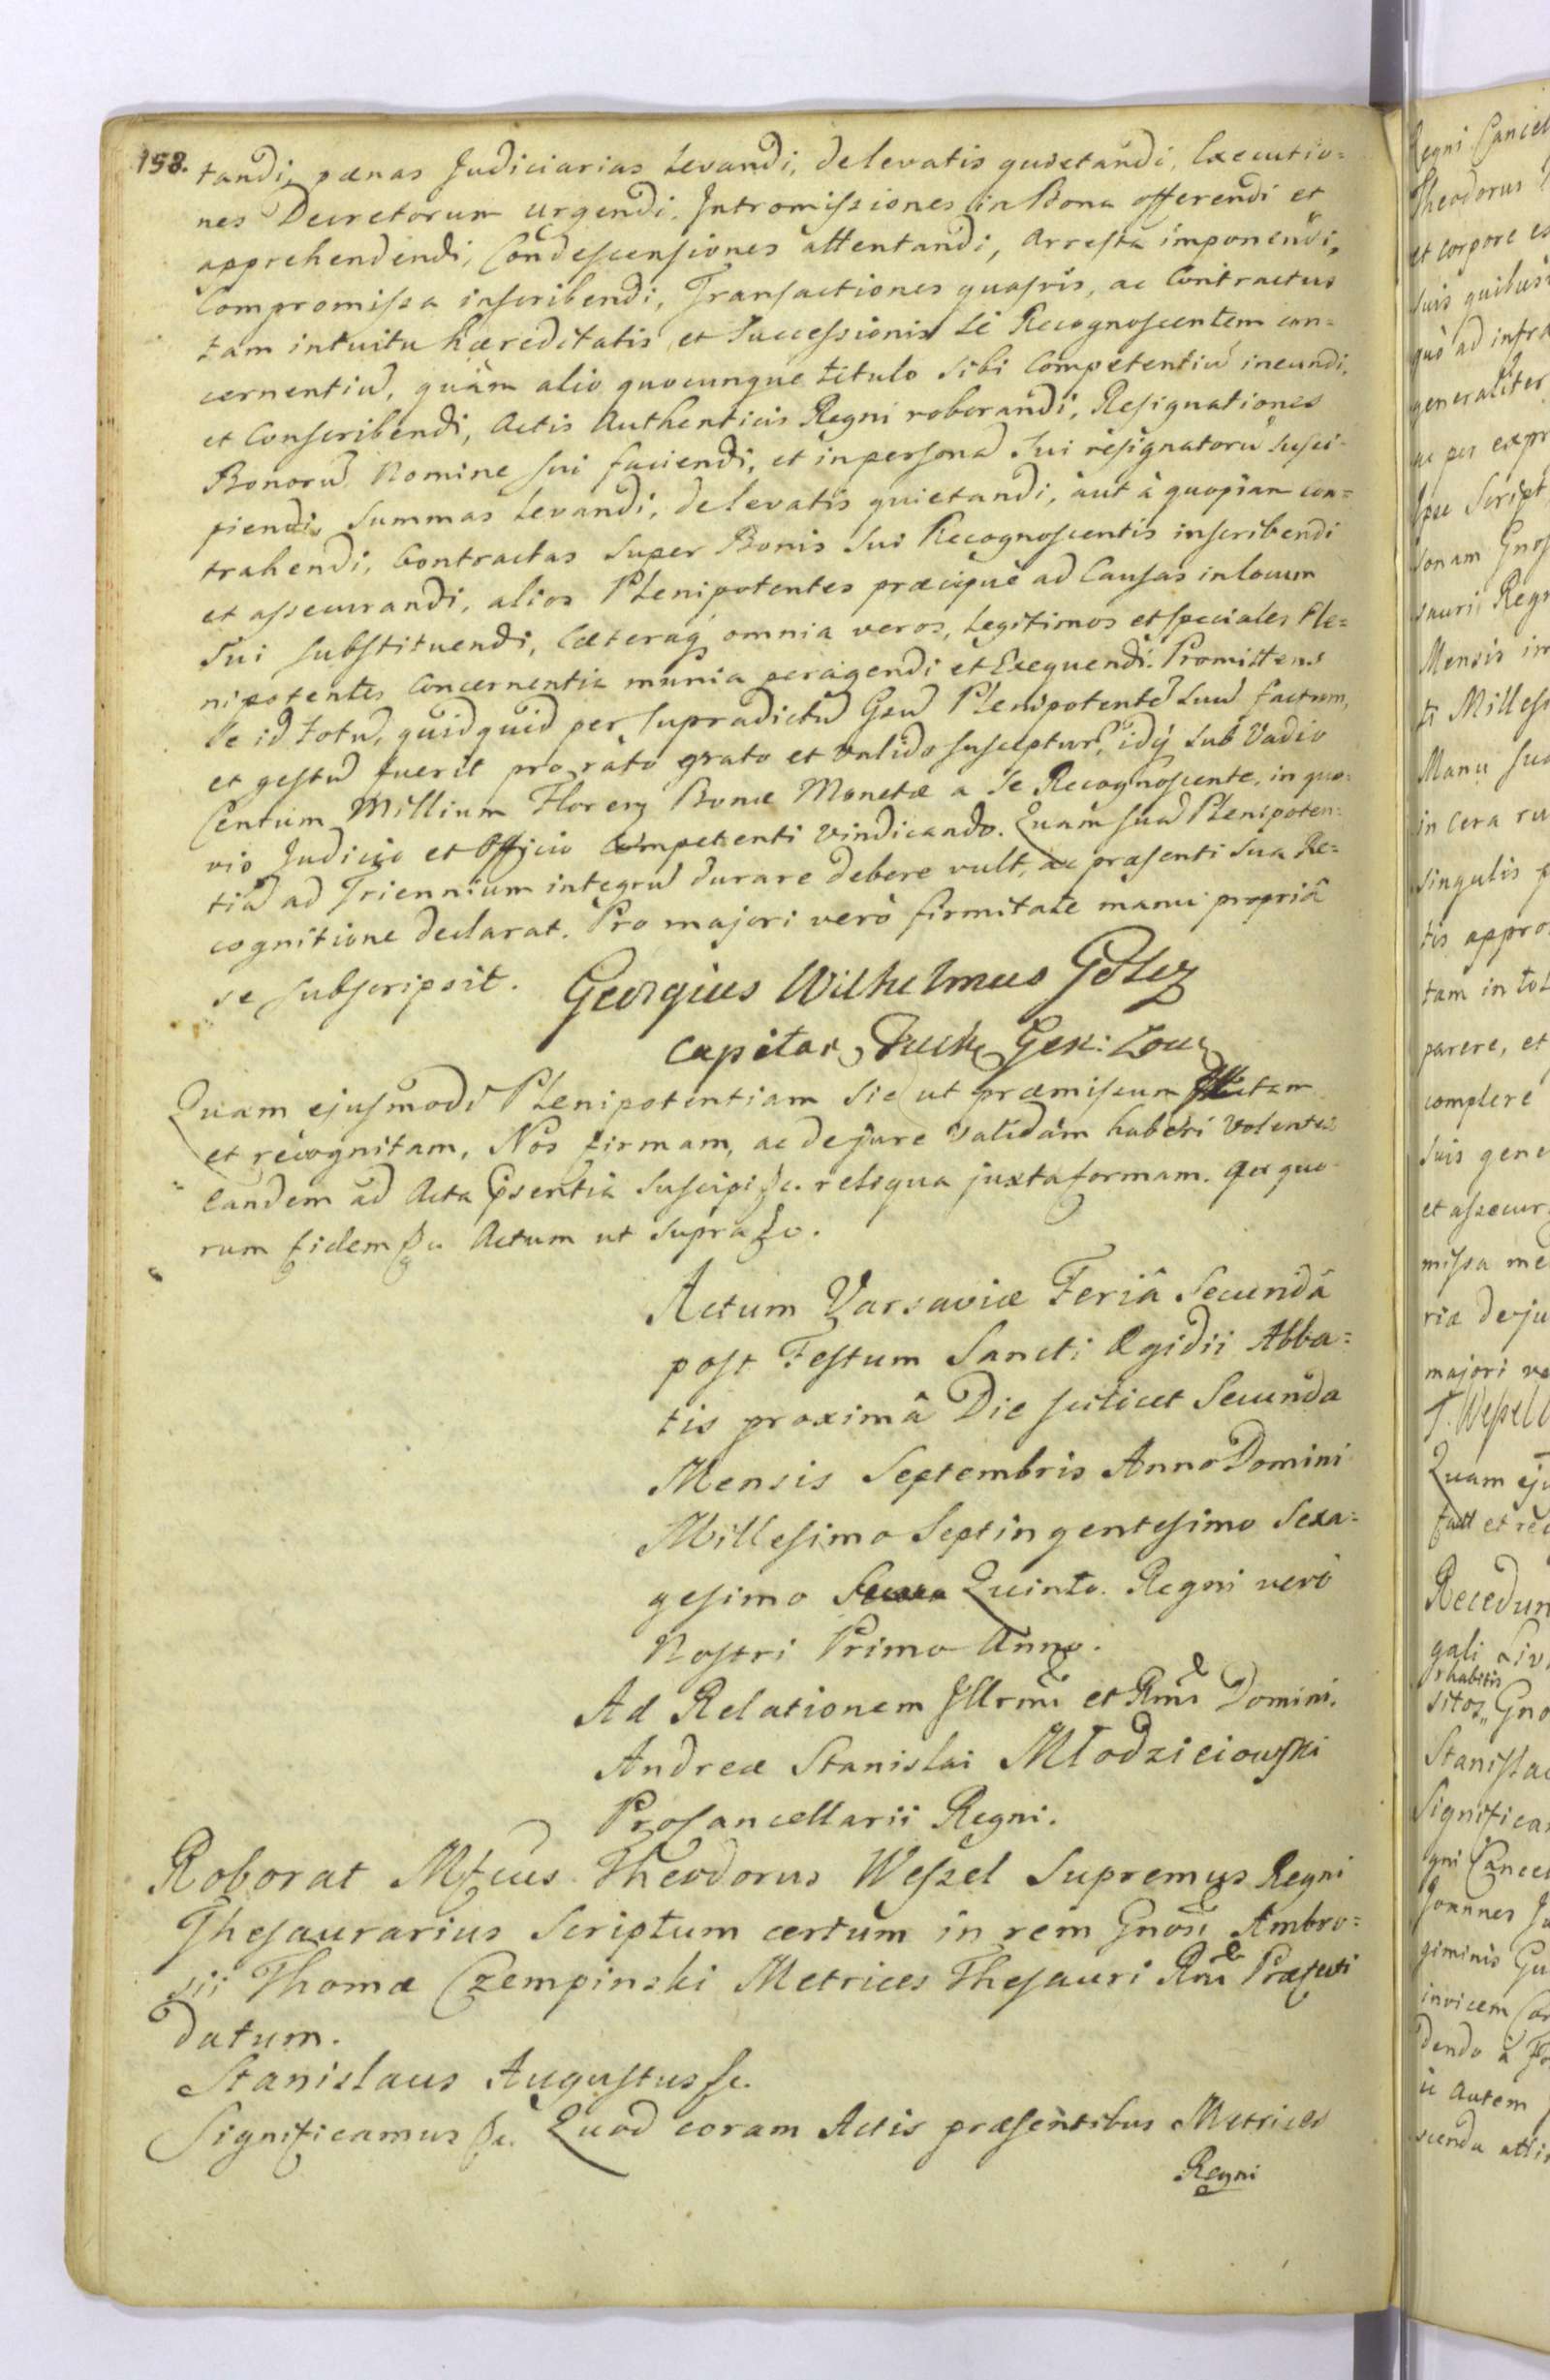 158. tandi, pænas Judiciarias Levandi, delevatis quietandi, Executio=
nes Decretorum urgendi. Intromissiones in Bona offerendi et
apprehendendi, Condescensiones attentandi, arresta imponendi,
Compromissa inscribendi, Transactiones quasvis, ac Contractus
tam intuitu hæreditatis et Successionis Se Recognoscentem con=
cernentiu, quàm alio quocunque titulo Sibi Competentiu ineundi,
et Conscribendi, Actis Authenticis Regni roborandi, Resignationes
Bonoru Nomine Sui faciendi, et in persona Sui resignatoru Susci=
piendi, Summas Levandi, delevatis quietandi, aut à quopiam con=
trahendi, Contractas Super Bonis Sui Recognoscentis inscribendi
et assecurandi, alios Plenipotentes præcipuè ad Causas in locum
Sui Substituendi, Cæteraq omnia veros, Legitimos et speciales Ple=
nipotentes Concernentia munia peragendi et Exequendi. Promittens
Se id totu, quidquid per Supradictu Gsu Plenipotente Suu factum,
et gestu fuerit pro rato grato et valido suscepturu, idq Sub Vadio
Centum Millium Floren Bonæ Monetæ a Se Recognoscente, in quo=
vis Judicio et Officio Competenti vindicando. Quam sua Plenipoten=
tia ad Triennium integru durare debere vult, ac præsenti Sua Re=
cognitione declarat. Pro majori verò firmitate manu propriâ
se subscripsit. Georgius Wilhelmus Goltz
Capita Tuch Gen:
Quam ejusmodi Plenipotentiam Sic ut præmissum
et recognitam, Nos firmam, ac de jure validam haberi volentes
Eandem ad Acta psentia Suscipi &c. reliqua juxta formam. In quo=
rum fidem &c Actum ut Supra &c.
Actum Varsaviæ Feriâ Secundâ
post Festum Sancti Ægidii Abba=
tis proximâ Die scilicet Secunda
Mensis Septembris Anno Domini
Millesimo Septingentesimo Sexa=
gesimo Quinto. Regni verò
Nostri Primo Anno.
Ad Relationem Illrmi et Rmi Domini.
Andreæ Stanislai Młodzieiowski
Procancellarii Regni.
Roborat Mfcus Theodorus Wessel Supremus Regni
Thesaurarius Scriptum certum in rem Gnosi Ambro=
sii Thomæ Czempinski Metrices Thesauri Rni Præfecti
datum.
Stanislaus Augustus &c.
Significamus &c. Quod coram Actis præsentibus Metrices
Regni